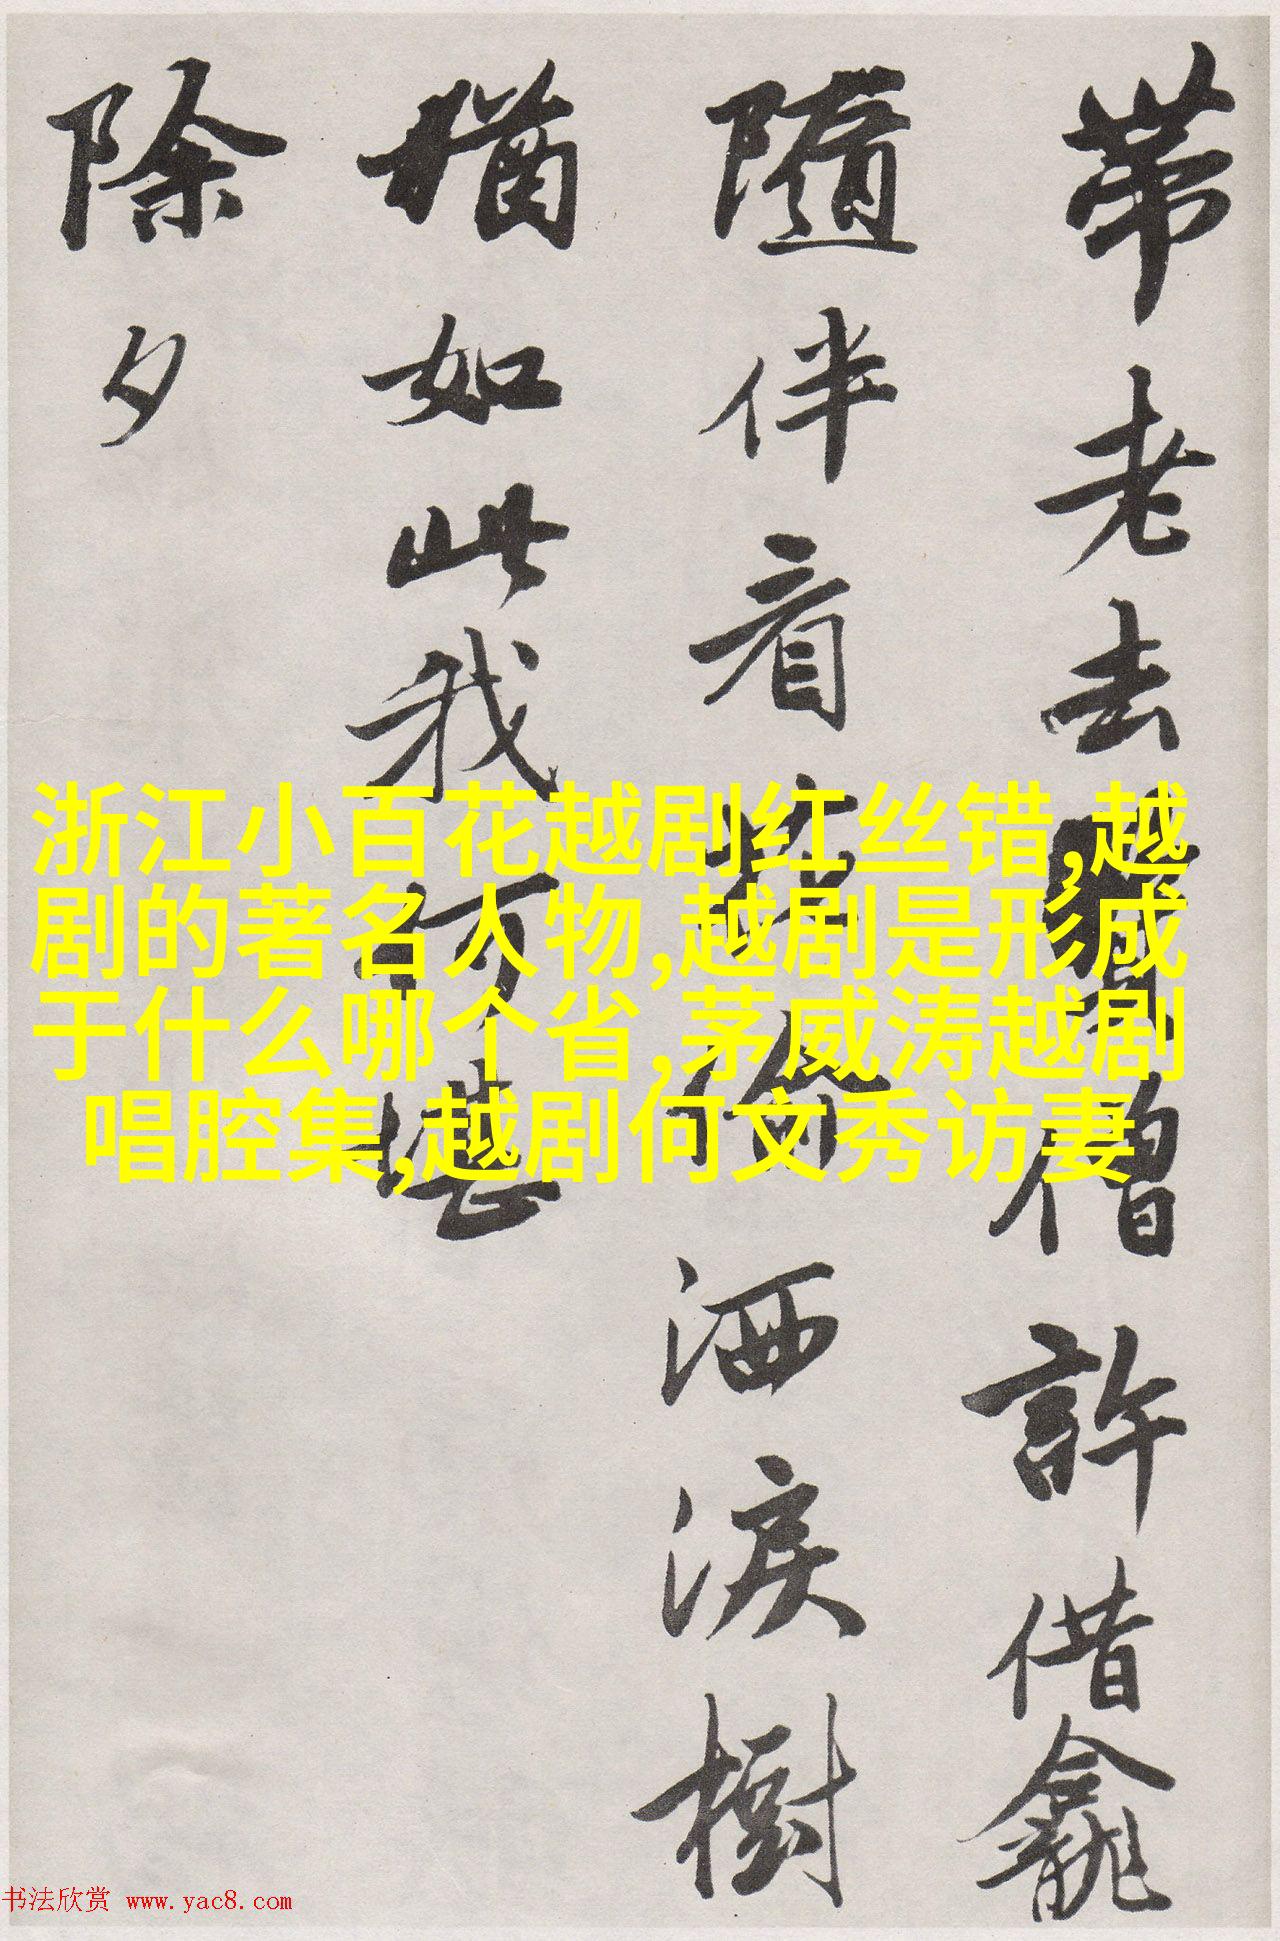 帶老去僧許借龕
隨伴看花偷洒淚樹
猶如此我何堪
除夕
浙江小百花越剧红丝错,越
剧的著名人物,越剧是形成
于什么哪个省,茅威涛越剧
唱腔集,越剧何文秀访妻
书法欣赏 www.yac8.com